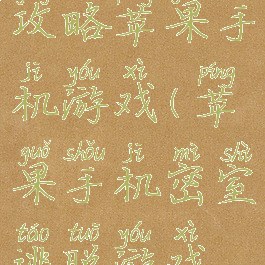 攻略苹果手
jī yóu xì píng
机游戏(苹
guǒ shǒu jī mì shì
果手机密室
táo tuō yóu xì
逃脱游戏